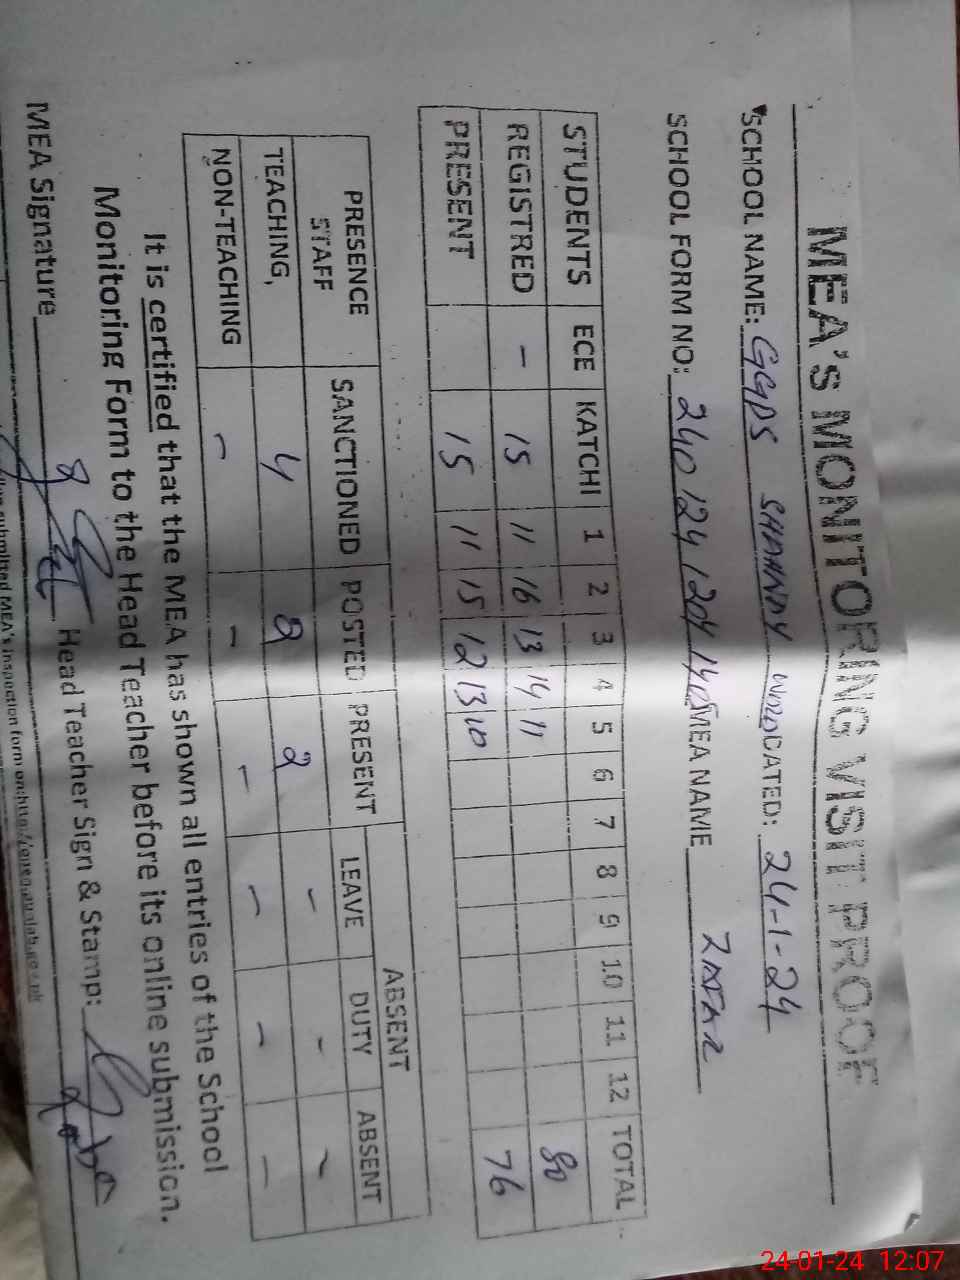 MEA's MONITORING VISIT PROOF
SCHOOL NAME: GGPS SHAHNDY DATED: 24-1-24
SCHOOL FORM NO: MEA NAME ZAFAR
STUDENTS ECE KATCHI 1 2 3 4 5 6 7 8 9 10 11 12 TOTAL
REGISTRED - 15 11 16 13 14 11 80
PRESENT 15 11 15 12 13 10 76
PRESENCE STAFF SANCTIONED POSTED PRESENT ABSENT
LEAVE DUTY ABSENT
TEACHING, 4 2 2 - - -
NON-TEACHING - - - - - -
It is certified that the MEA has shown all entries of the School
Monitoring Form to the Head Teacher before its online submission.
MEA Signature Head Teacher Sign & Stamp:
submitted MEA's inspection form on:
24-01-24 12:07